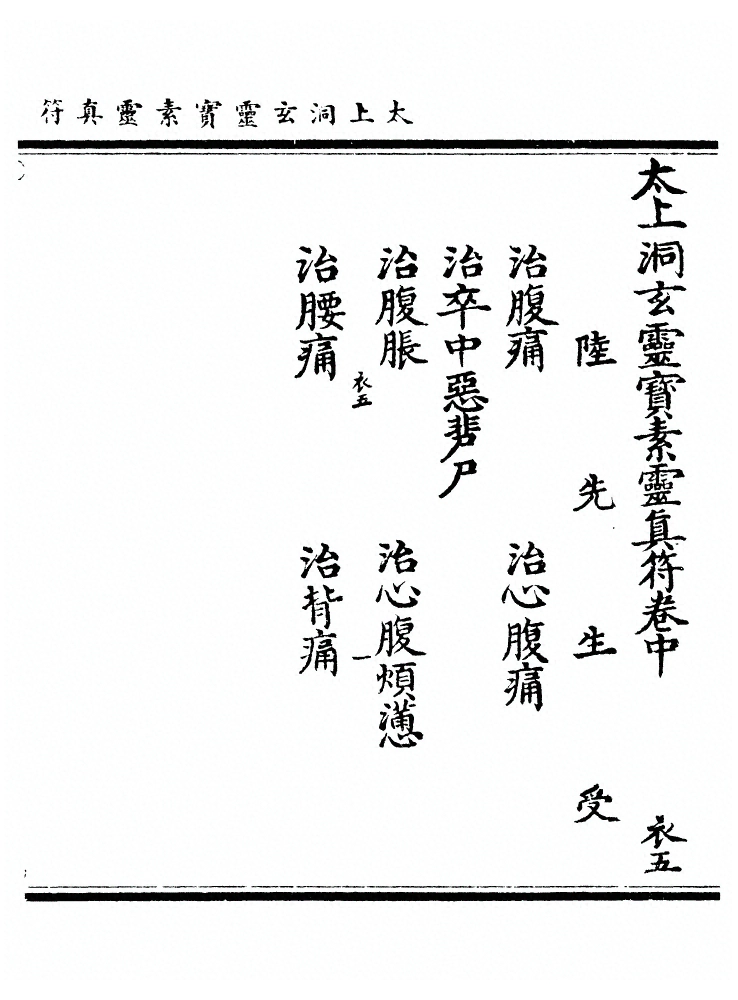 太上洞玄靈寶素靈真符
太上洞玄靈寶素靈眞符卷中 衣五
陸先生受
治腹痛 治心腹痛
治卒中惡蜚尸
治腹脹 治心腹煩懣
衣五 一
治腰痛 治背痛